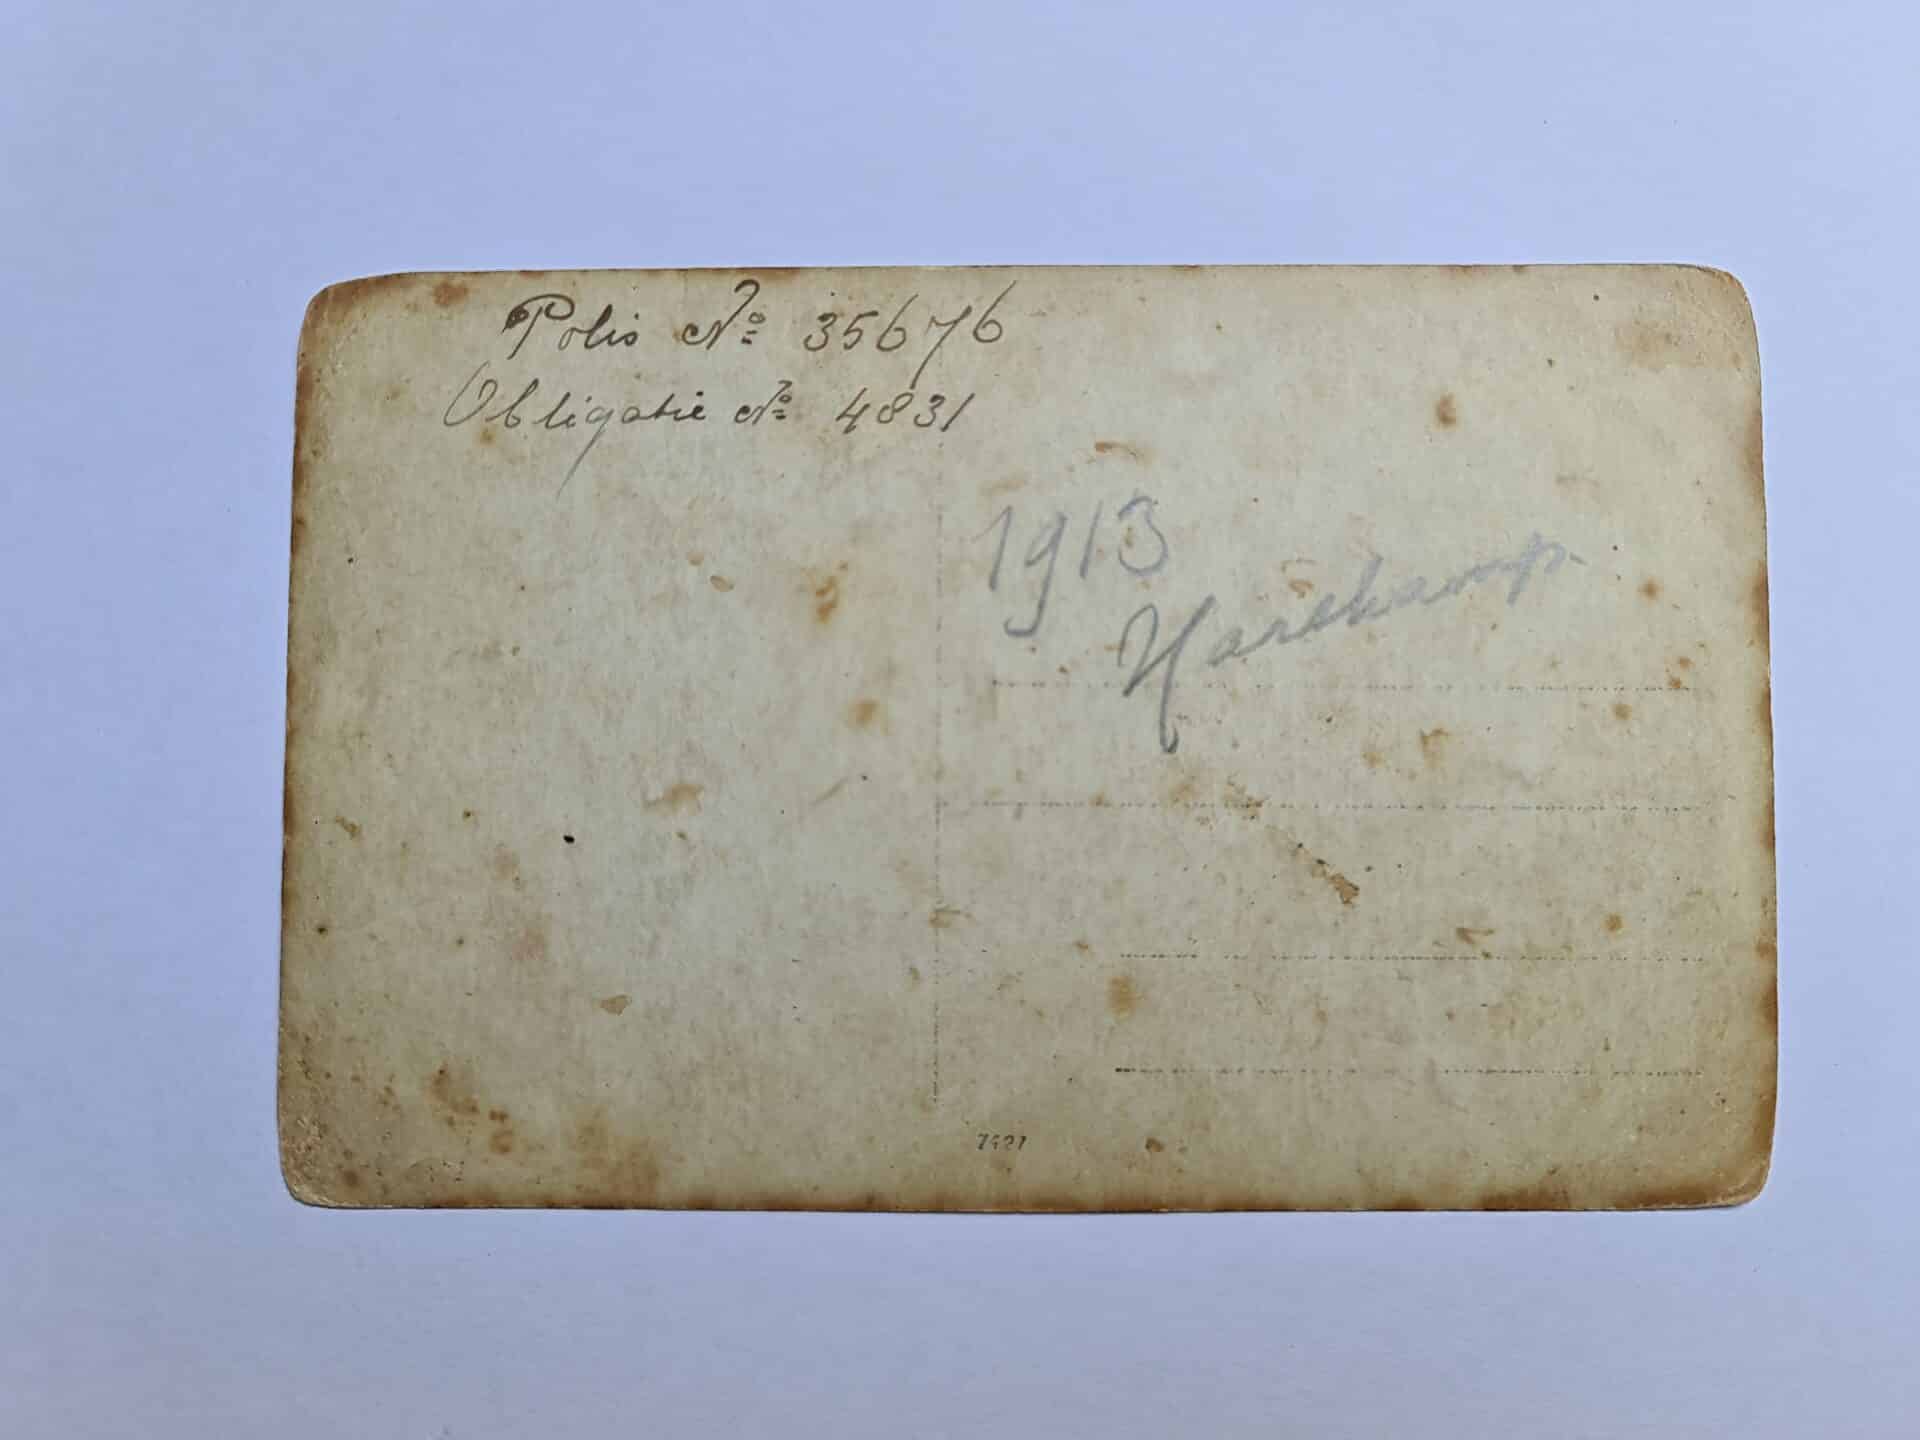 Polis No 35676
Obligatie No 4831
1913
Harskamp.
7421